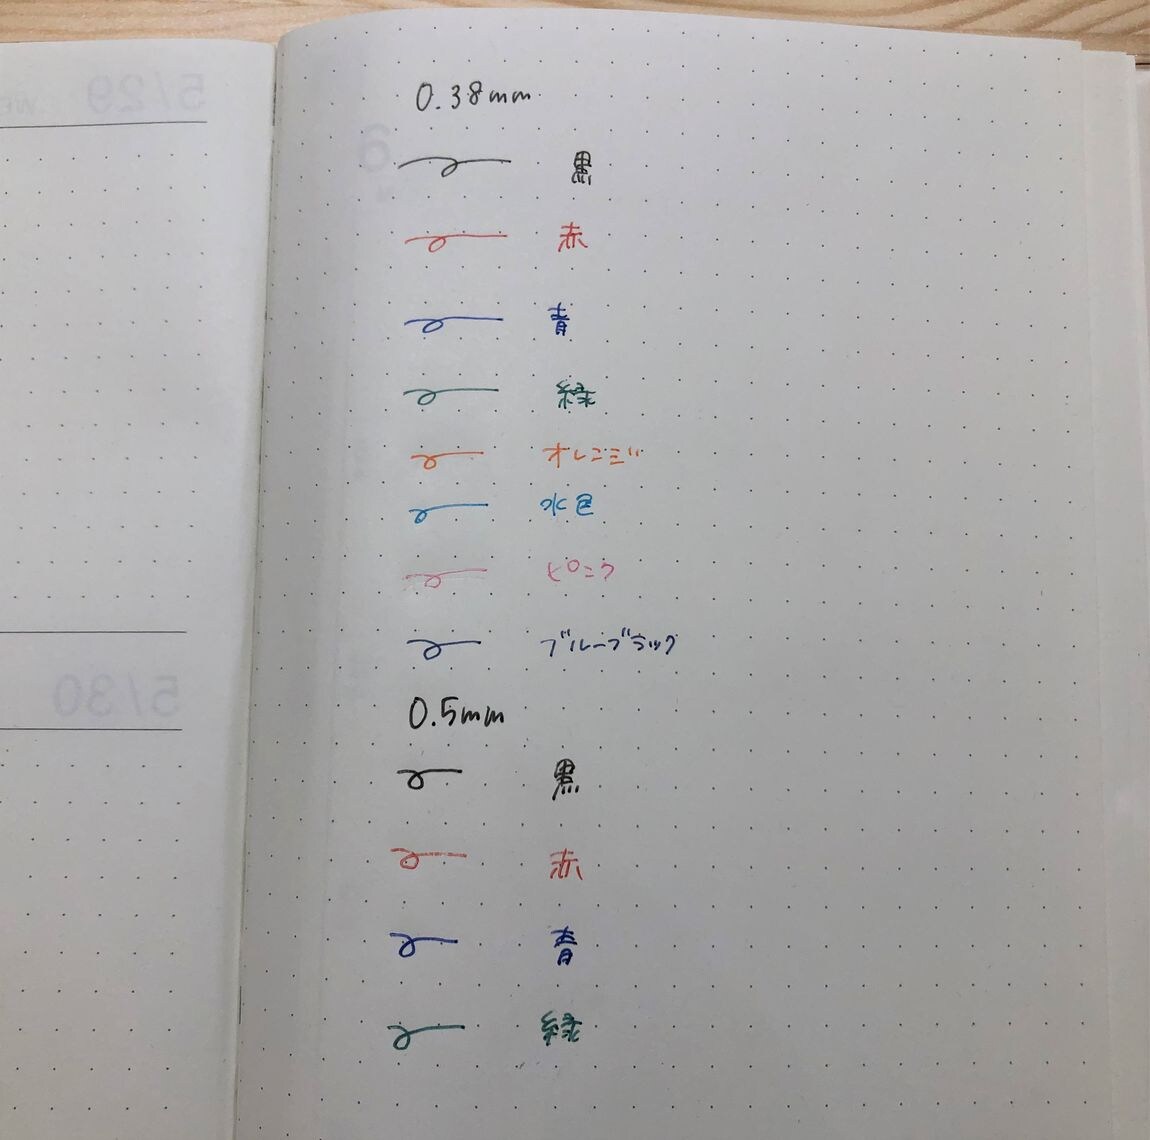 5/29 WE
0.38mm
黒
赤
青
緑
オレンジ
水色
ピンク
ブルーブラック
5/30
0.5mm
黒
赤
青
緑